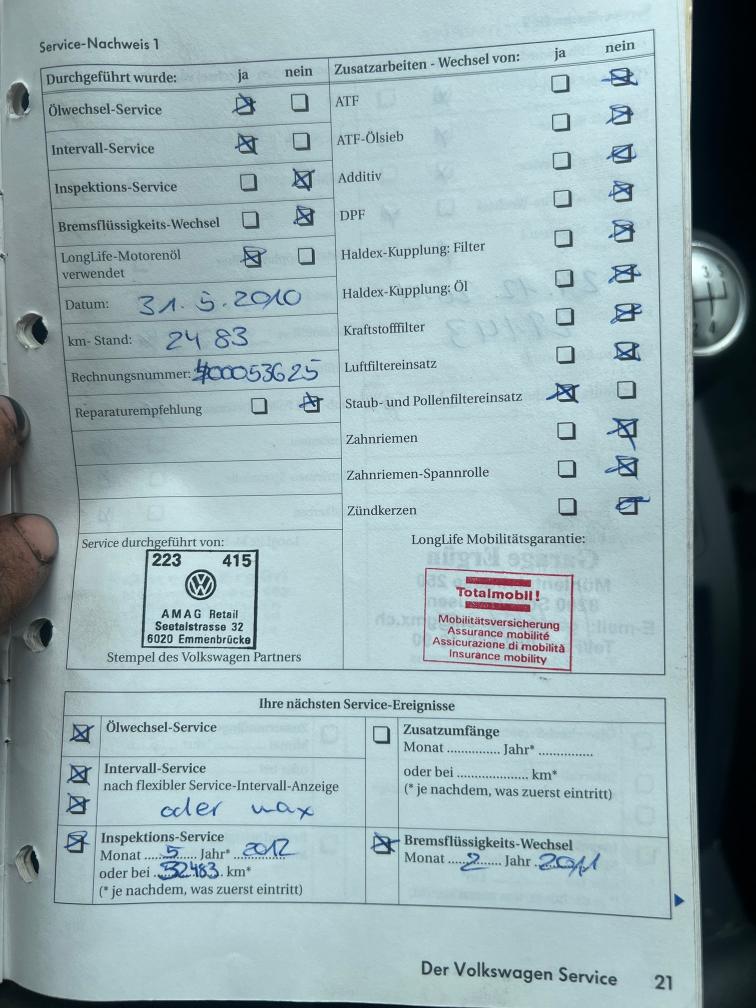 Service-Nachweis 1
Durchgeführt wurde: ja nein
Ölwechsel-Service
Intervall-Service
Inspektions-Service
Bremsflüssigkeits-Wechsel
LongLife-Motorenöl
verwendet
Datum: 31.5.2010
km-Stand: 2483
Rechnungsnummer: 400053625
Reparaturempfehlung
Service durchgeführt von:
223 415
AMAG Retail
Seetalstrasse 32
6020 Emmenbrücke
Stempel des Volkswagen Partners
Zusatzarbeiten - Wechsel von: ja nein
ATF
ATF-Ölsieb
Additiv
DPF
Haldex-Kupplung: Filter
Haldex-Kupplung: Öl
Kraftstofffilter
Luftfiltereinsatz
Staub- und Pollenfiltereinsatz
Zahnriemen
Zahnriemen-Spannrolle
Zündkerzen
LongLife Mobilitätsgarantie:
Totalmobil!
Mobilitätsversicherung
Assurance mobilité
Assicurazione di mobilità
Insurance mobility
Ihre nächsten Service-Ereignisse
Ölwechsel-Service
Intervall-Service
nach flexibler Service-Intervall-Anzeige
oder max
Inspektions-Service
Monat ..... 5 ..... Jahr* 2012
oder bei . 32483 . km*
(* je nachdem, was zuerst eintritt)
Zusatzumfänge
Monat .............. Jahr* ..............
oder bei ................... km*
(* je nachdem, was zuerst eintritt)
Bremsflüssigkeits-Wechsel
Monat ..... 2 ..... Jahr 2011
Der Volkswagen Service 21